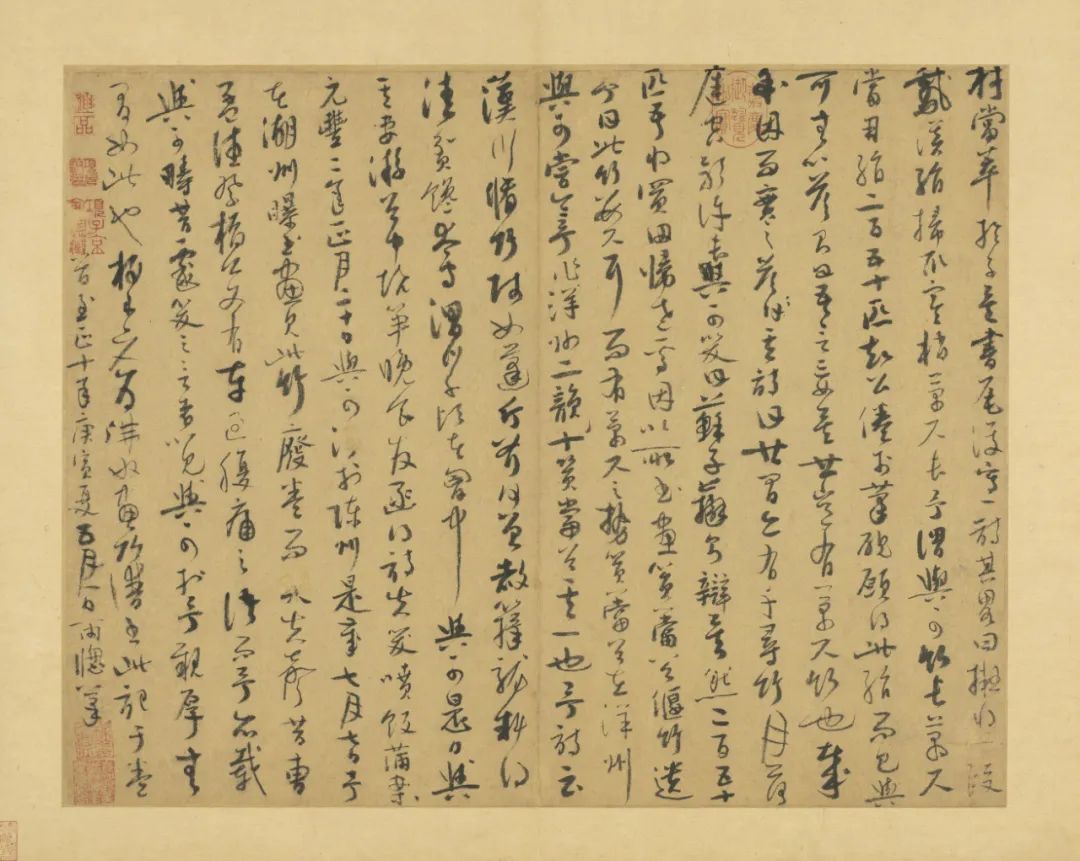 材當萃於子矣書尾復寫一詩其略曰擬將一段
鵝溪絹掃取寒梢萬尺長予謂與可竹長萬尺
當用絹二百五十匹知公倦於筆硯願得此絹而已與
可無以答則曰吾言妄矣世豈有萬尺竹也哉
余因而實之答其詩曰世間亦有千尋竹月落
庭空影許長與可笑曰蘇子辯則辯矣然二百五十
匹吾將買田歸老焉因以所畫篔簹谷偃竹遺
予曰此竹數尺耳而有萬尺之勢篔簹谷在洋州
與可嘗令予作洋州韻十篔簹谷其一也予詩云
漢川脩竹賤如蓬斤斧何曾赦籜龍料得
清貧饞太守渭川千畝在胸中與可是日與
其妻游谷中燒筍晚食發函得詩失笑噴飯滿案
元豐二年正月二十日與可沒於陳州是歲七月七日予
在湖州曝書畫見此竹廢卷而哭失聲昔曹
孟德祭橋公文有車過腹痛之語而予亦載
與可疇昔戲笑之言者以見與可於予親厚無
間如此也畫竹書此記于卷
首至正十年庚寅夏五月一日雨窗筆